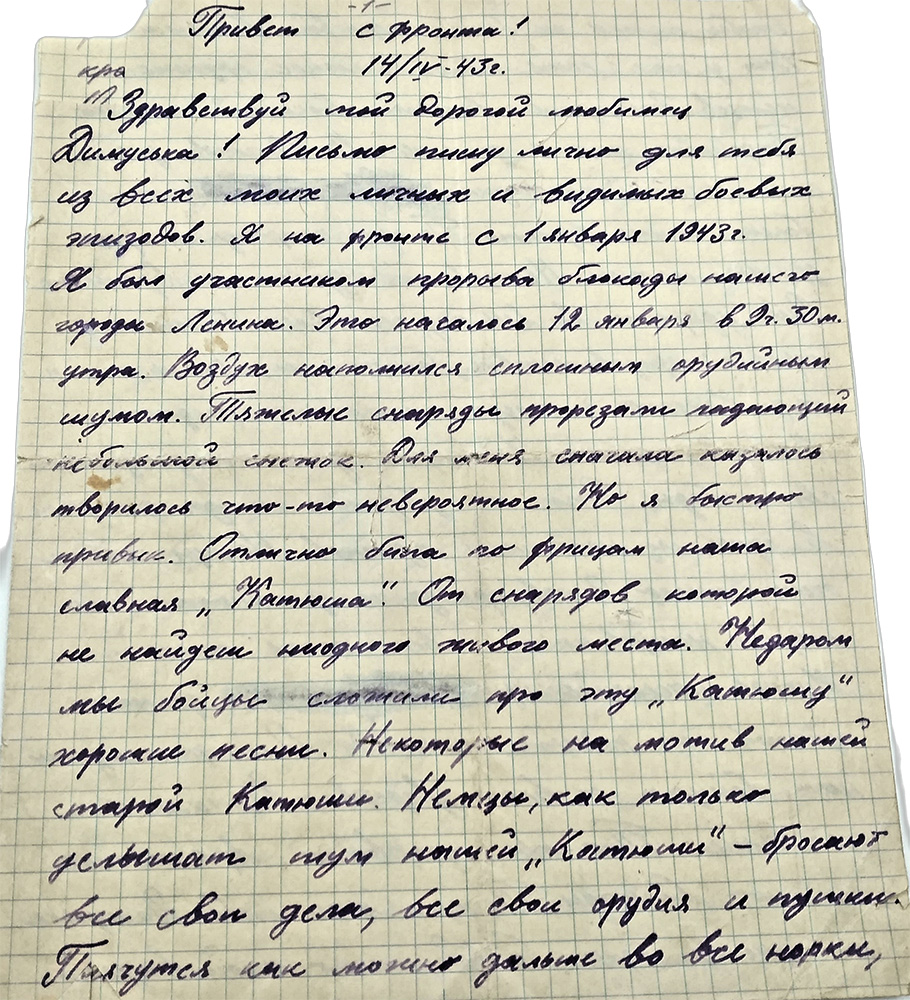 -1-
Привет с фронта!
14/IV-43г.
Здравствуй мой дорогой любимец
Димуська! Письмо пишу лично для тебя
из всех моих личных и видимых боевых
эпизодов. Я на фронте с 1 января 1943г.
Я был участником прорыва блокады нашего
города Ленина. Это началось 12 января в 9ч. 30м.
утра. Воздух наполнился сплошным орудийным
шумом. Тяжелые снаряды прорезали падающий
небольшой снежок. Для меня сначала казалось
творилось что-то невероятное. Но я быстро
привык. Отлично била по фрицам наша
славная „Катюша". От снарядов которой
не найдеш ниодного живого места. Недаром
мы бойцы сложили про эту „Катюшу"
хорошие песни. Некоторые на мотив нашей
старой Катюши. Немцы, как только
услышат шум нашей „Катюши" – бросают
все свои дела, все свои орудия и пушки.
Прячутся как можно дальше во все норки,